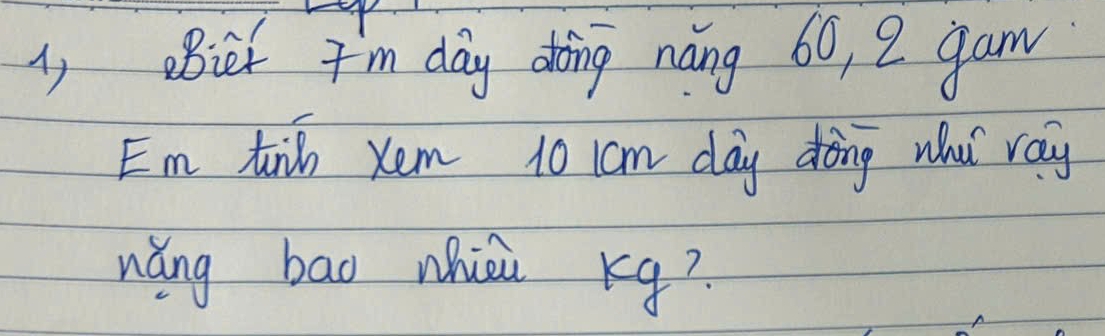 1, Biết 7m dây đồng nặng 60,2 gam
Em tính xem 10 km dây đồng như vậy
nặng bao nhiêu kg?